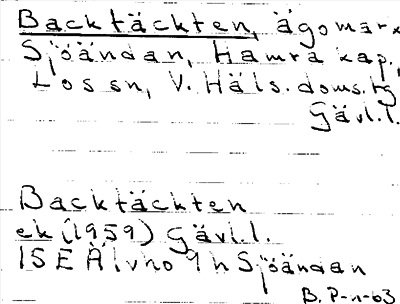 Backtäckten, ägomark
Sjöändan, Hamra kap.,
Los sn, V. Häls. doms.tg
Gävl.l.
Backtäckten
ek (1959) Gävl.l.
15E Älvho 9h Sjöändan
B. P-n-63